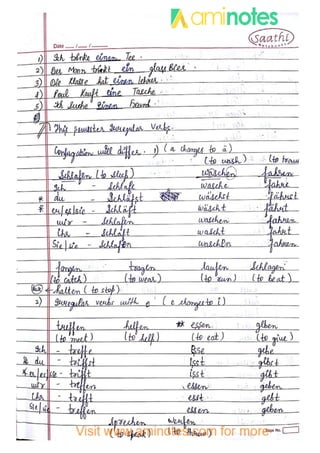 aminotes
Saathi
Date
1) Ich trinke einen Tee.
2) Der Mann trinkt ein glass Bier.
3) Die Klasse hat einen lehrer.
4) Paul kauft eine Tasche
5) Ich suche einen
This semester Irregular Verbs.
Conjugation will differ. 1) (a changes to ä)
(to wash) (to travel
Schlafen (to sleep) waschen fahren
Ich - Schlafe wasche fahre
* du - Schläfst wäschst fährst
* er/es/sie - Schläft wäscht fährt
wir - Schlafen waschen fahren
Ihr - Schlaft wascht fahrt
Sie/sie - Schlafen waschen fahren
fangen tragen laufen Schlagen
(to catch) (to wear) (to run) (to beat)
halten (to stop)
2) Irregular verbs with e (e changes to i)
treffen helfen ** essen geben
(to meet) (to help) (to eat) (to give)
Ich - treffe esse gebe
* du - triffst isst gibst
* er/es/sie - trifft isst gibt
wir - treffen essen geben
Ihr - trefft esst gebt
Sie/sie - treffen essen geben
sprechen werfen
(to speak) (to throw)
Visit www.aminotes.com for more
Page No.